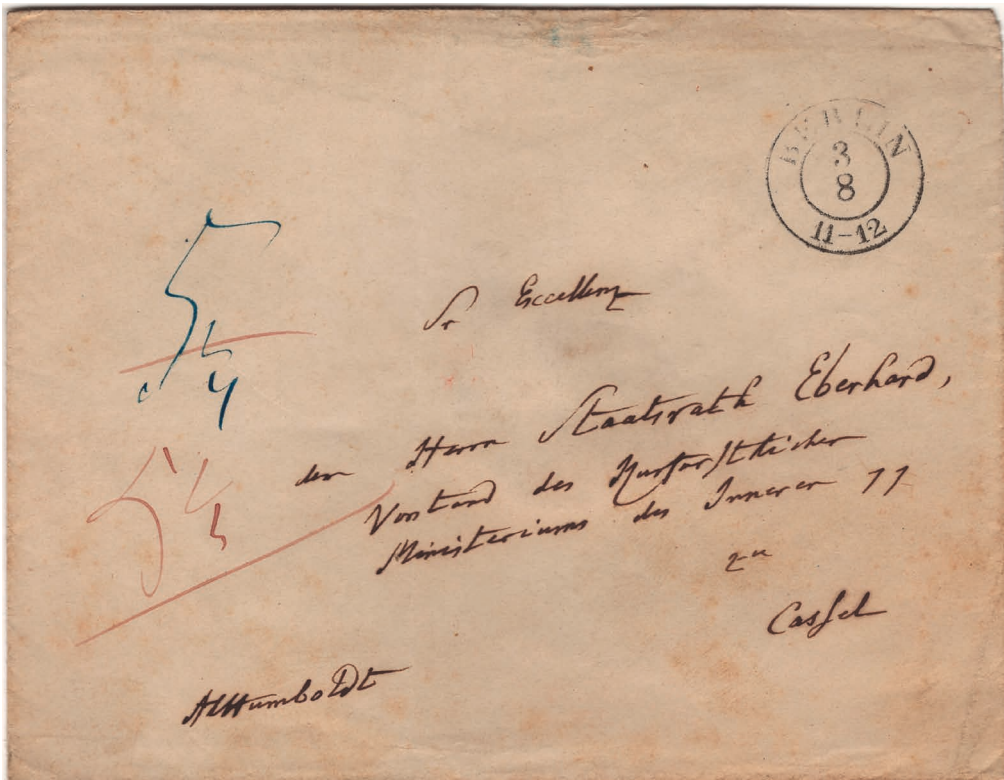 BERLIN
3
8
11-12
Sr Excellenz
den Herrn Staatsrath Eberhard,
Vorstand des Kurfürstlicher
Ministeriums des Inneren
zu
Cassel
AlHumboldt